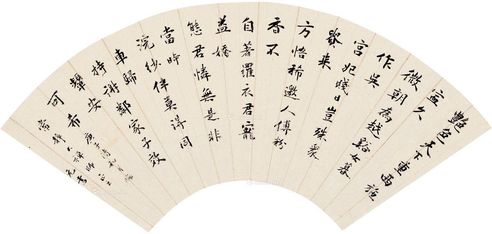 艷色天下重西施
寧久
微朝為越谿女暮
作吳
宮妃賤日豈殊衆
貴來
方悟稀邀人傅粉
香不
自著羅衣君寵
益嬌
態君憐無是非
當時
浣紗伴莫得同
車歸
持謝鄰家子效
顰安
可希